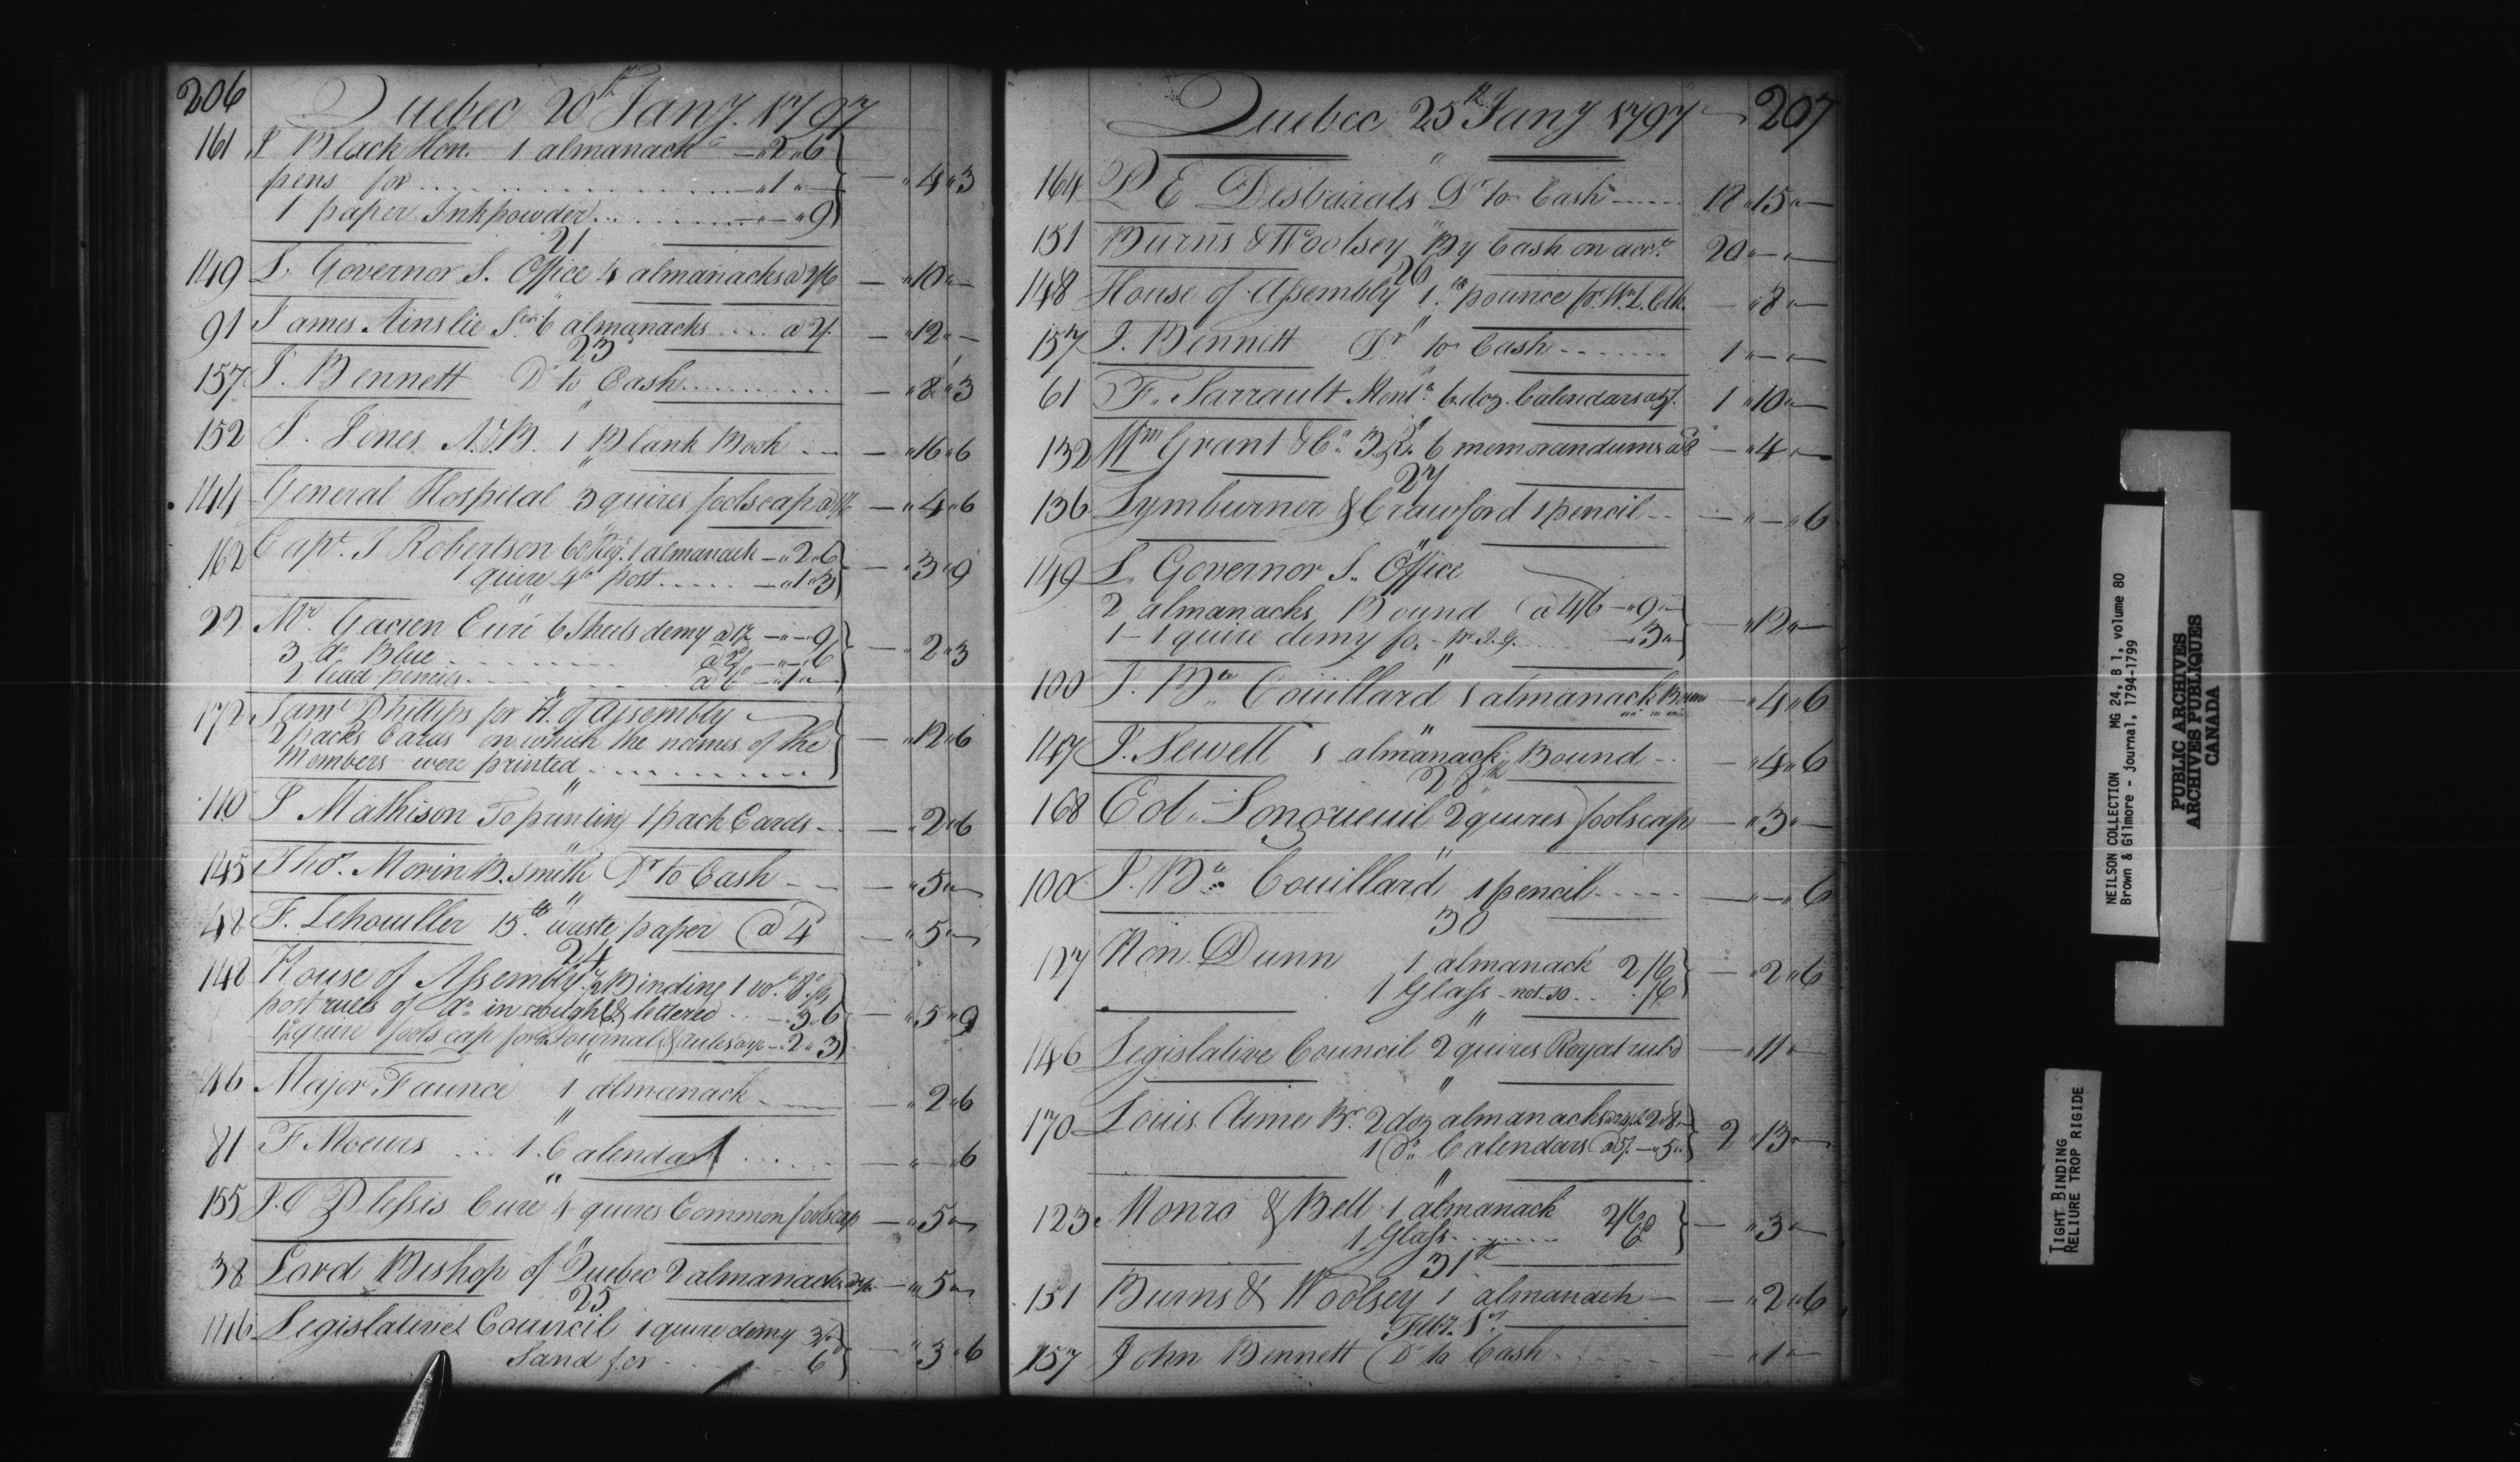 206
Quebec 20th Jany. 1797
161 J Black Hon. 1 almanack — „ 2 „ 6
pens for ............ — „ 1 „ — — „ 4 „ 3
1 paper Inkpowder ......... — „ — „ 9
21
149 L. Governor S. Office 4 almanacks a 2/6 — „ 10 „ —
"
91 James Ainslie Senr. 6 almanacks .... a 2/. — „ 12 „ —
23
157 J. Bennett Dr to Cash .......... — „ 8 „ 3
"
152 J. Jones A.&B. 1 Blank Book ... — „ 16 „ 6
"
144 General Hospital 3 quires foolscap a 1/6 — „ 4 „ 6
"
162 Capt. J Robertson 60 Regt. 1 almanack — „ 2 „ 6
1 quire 4to post ..... — „ 1 „ 3 — „ 3 „ 9
"
22 Mr. Gacien Curé 6 Sheets demy a 1½ — „ — „ 9
3 do Blue ........ a 2d — „ — „ 6 — „ 2 „ 3
2 lead pencils ....... a 6 — „ 1 „ —
"
172 Saml Phillips for H. of Assembly
2 packs Cards on which the names of the — „ 12 „ 6
Members were printed ............
"
110 J Mathison To printing 1 pack Cards ... — „ 2 „ 6
"
145 Thos. Morin B. Smith Dr to Cash — — „ 5 „ —
"
48 F. Lehouiller 15 lb waste paper @ 4 — „ 5 „ —
24
148 House of Assembly ½ Binding 1 vol. 8o fo
post rules of do in rough & lettered .... „ 3 „ 6 — „ 5 „ 9
1½ quire fools cap for Journal & rules a 1/6 — „ 2 „ 3
"
46 Major Faunce 1 almanack ...... — „ 2 „ 6
"
81 F Moeurs .... 1 Calendar ..... — „ — „ 6
"
155 J. O Plessis Curé 4 quires Common foolscap — „ 5 „ —
"
38 Lord Bishop of Quebec 2 almanacks a 2/6 — „ 5 „ —
25
146 Legislative Council 1 quire demy 3/.
Sand for ........ 6 — „ 3 „ 6
Quebec 25th Jany 1797 207
"
164 P. E Desbarats Dr to Cash ..... 12 „ 15 „ —
"
151 Burns & Woolsey By Cash on acct. 20 „ — „ —
26
148 House of Assembly 1 lb pounce pr. Wm. L. Clk. — „ 8 „ —
"
157 J. Bennett Dr to Cash ....... 1 „ — „ —
"
61 F. Sarrault Montl. 6 doz. Calendars a 5/. 1 „ 10 „ —
"
132 Wm Grant & Co. 3. R. 6 memorandums a 8d — „ 4 „ —
27
136 Lymburner & Crawford 1 pencil ... — „ — „ 6
"
149 L. Governor S. Office
2 almanacks Bound @ 4/6 — „ 9 „ —
1 – 1 quire demy fo. – pr. I. G. ..... — „ 3 „ — — „ 12 „ —
"
100 J. Bte Couillard 1 almanack Bound — „ 4 „ 6
"
147 J. Sewell 1 almanack Bound .. — „ 4 „ 6
28th
168 Col. Longueuil 2 quires foolscap — „ 3 „ —
"
100 J. Bte Couillard 1 pencil ..... — „ — „ 6
30
127 Hon. Dunn 1 almanack 2/6
1 Glass – not so ... /6 — „ 2 „ 6
"
146 Legislative Council 2 quires Royal ruld — „ 11 „ —
"
170 Louis Aimé Br. 2 doz almanacks a 24/. 2 „ 8 „ —
1 Do. Calendars @ 5/. — „ 5 „ 2 „ 13 „ —
"
123 Monro & Bell 1 almanack 2/6
1 Glass ........ 6 — „ 3 „ —
31st
151 Burns & Woolsey 1 almanack — — „ 2 „ 6
Feby. 1st.
157 John Bennett Dr to Cash ..... — „ 1 „ —
NEILSON COLLECTION MG 24, B 1, volume 80
Brown & Gilmore - journal, 1794-1799
PUBLIC ARCHIVES
ARCHIVES PUBLIQUES
CANADA
TIGHT BINDING
RELIURE TROP RIGIDE